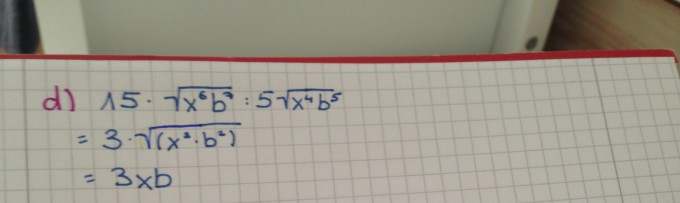 d) 15 · √x⁶b⁷ : 5√x⁴b⁵
= 3 · √(x² · b²)
= 3xb